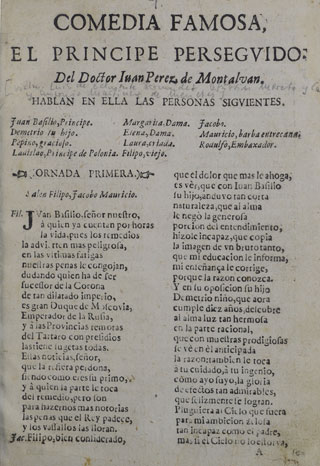 COMEDIA FAMOSA,
EL PRINCIPE PERSEGVIDO.
Del Doctor Iuan Perez de Montalvan.
HABLAN EN ELLA LAS PERSONAS SIGVIENTES.
Juan Basilio, Principe.
Demetrio su hijo.
Pepino, gracioso.
Ladislao, Principe de Polonia.
Margarita. Dama.
Elena, Dama.
Laura, criada.
Filipo, viejo.
Jacobo.
Mauricio, barba entrecana.
Rodulfo, Embaxador.
JORNADA PRIMERA.
Salen Filipo, Jacobo Mauricio.
Fil. JVan Basilio, señor nuestro,
à quien ya cuentan por horas
la vida, pues los remedios
la advierten mas peligrosa,
en las vltimas fatigas
nuestras penas le congojan,
dudando quien ha de ser
sucessor de la Corona
de tan dilatado imperio,
es gran Duque de Moscovia,
Emperador de la Rusia,
y à las Provincias remotas
del Tartaro con presidios
las tiene sugetas todas.
Ellas noticias, señor,
que la refiera perdona,
siendo como eres su primo,
y à quien la parte le toca
del remedio, pero son
para hazernos mas notorias
las penas que el Rey padece,
y los vassallos las lloran.
Jac. Filipo, bien considerado,
que el dolor que mas le ahoga,
es vèr, que con Iuan Basilio
su hijo, anduvo tan corta
naturaleza, que al alma
le negò la generosa
porcion del entendimiento,
hizole incapaz, que copia
la imagen de vn bruto tanto,
que mi educacion le informa,
mi enseñança le corrige,
porque la razon conozca.
Y en su oposicion su hijo
Demetrio niño, que aora
cumple diez años, descubre
al alma luz tan hermosa
en la parte racional,
que con muestras prodigiosas
se vè en èl anticipada
la razon: tambien le toca
à tu cuidado, à tu ingenio,
cómo ayo suyo, la gloria
de efectos tan admirables,
que felizmente le logran.
Pluguiera al Cielo que fuera
par mi ambicion
tan incapaz como el padre,
mas si el Cielo no lo estorva,
A